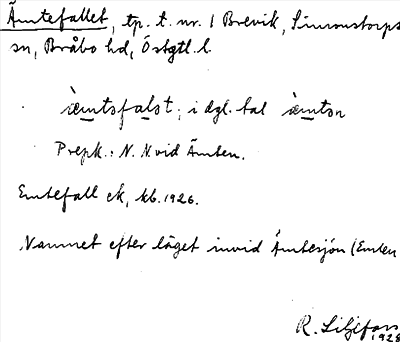 Ämtefallet, tp. t. nr. 1 Brevik, Simonstorps
sn, Bråbo hd, Östgtl. l.
ämtsfalst; i dgl. tal ämtsn
Prepk.: N. N. vid Ämten.
Emtefall ek, kb. 1926.
Namnet efter läget invid Ämtesjön (Emten
R. Liljefors
1928